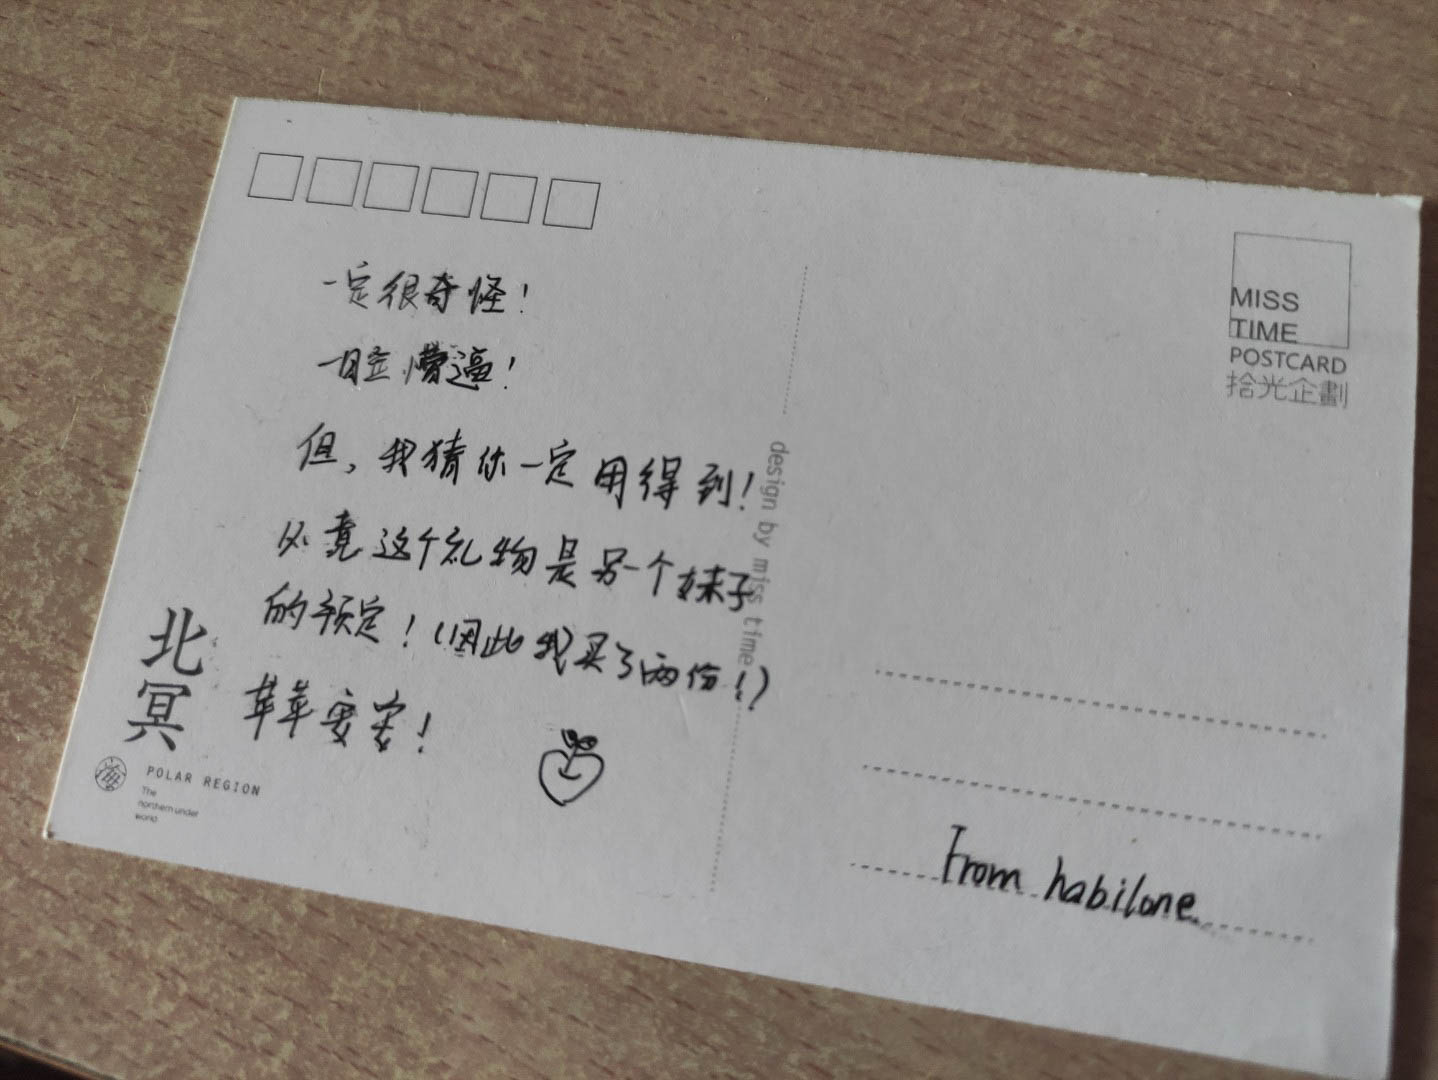 一定很奇怪!
一脸懵逼!
但,我猜你一定用得到!
必竟这个礼物是另一个妹子
的预定!(因此我买了两份!)
苹苹安安!
北冥
海
POLAR REGION
The
northern under
world
design by miss time
MISS
TIME
POSTCARD
拾光企劃
From habilone